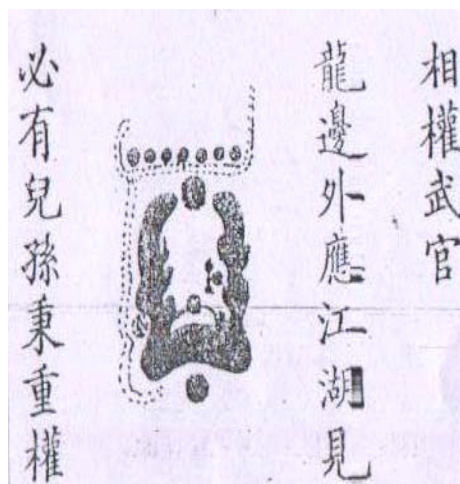 相權武官
龍邊外應江湖見
必有兒孫秉重權